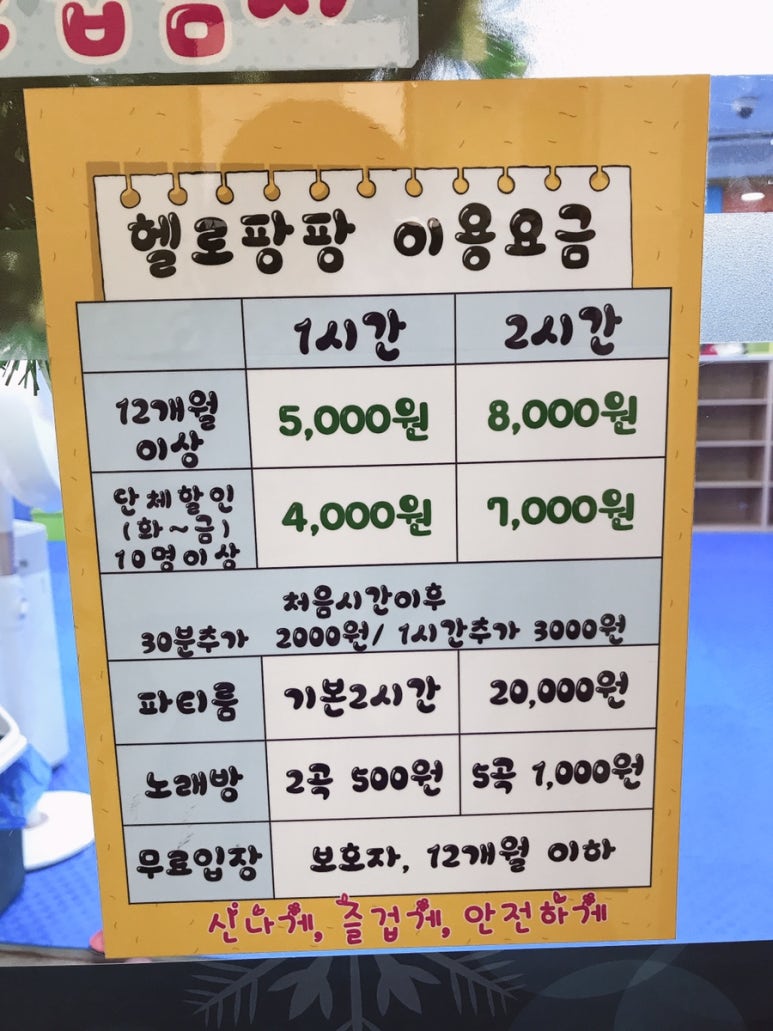 헬로팡팡 이용요금
1시간 2시간
12개월
이상
5,000원 8,000원
단체할인
(화~금)
10명이상
4,000원 7,000원
처음시간이후
30분추가 2000원/ 1시간추가 3000원
파티룸 기본2시간 20,000원
노래방 2곡 500원 5곡 1,000원
무료입장 보호자, 12개월 이하
신나게, 즐겁게, 안전하게